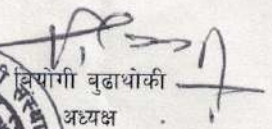 वियोगी बुढाथोकी
अध्यक्ष